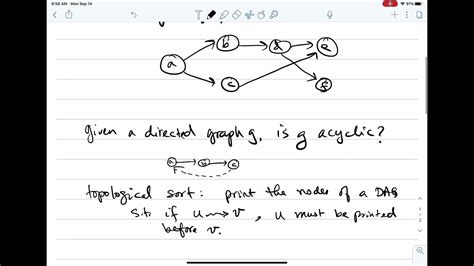 9:58 AM Mon Sep 14
91%
b
d
e
a
c
f
given a directed graph g, is g acyclic?
a
b
c
topological sort: print the nodes of a DAG
s.t. if u ⇝ v, u must be printed
before v.